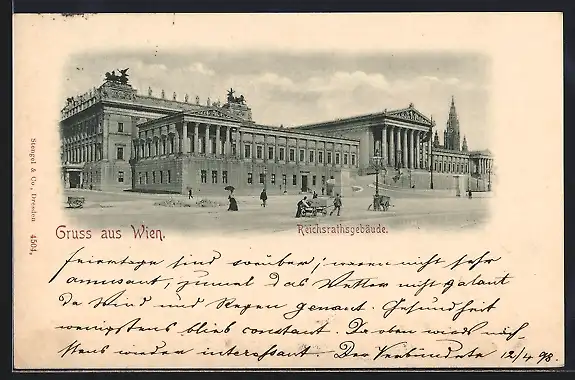 Stengel & Co., Dresden 4504.
Gruss aus Wien.
Reichsrathsgebäude.
feiertage sind vorüber; waren nicht sehr
amusant, zumal das Wetter nicht galant
da Wind und Regen genant. Gesundheit
wenigstens blieb constant. Da oben wird's nächstens wieder interessant. Der Verbündete 12/4 98.